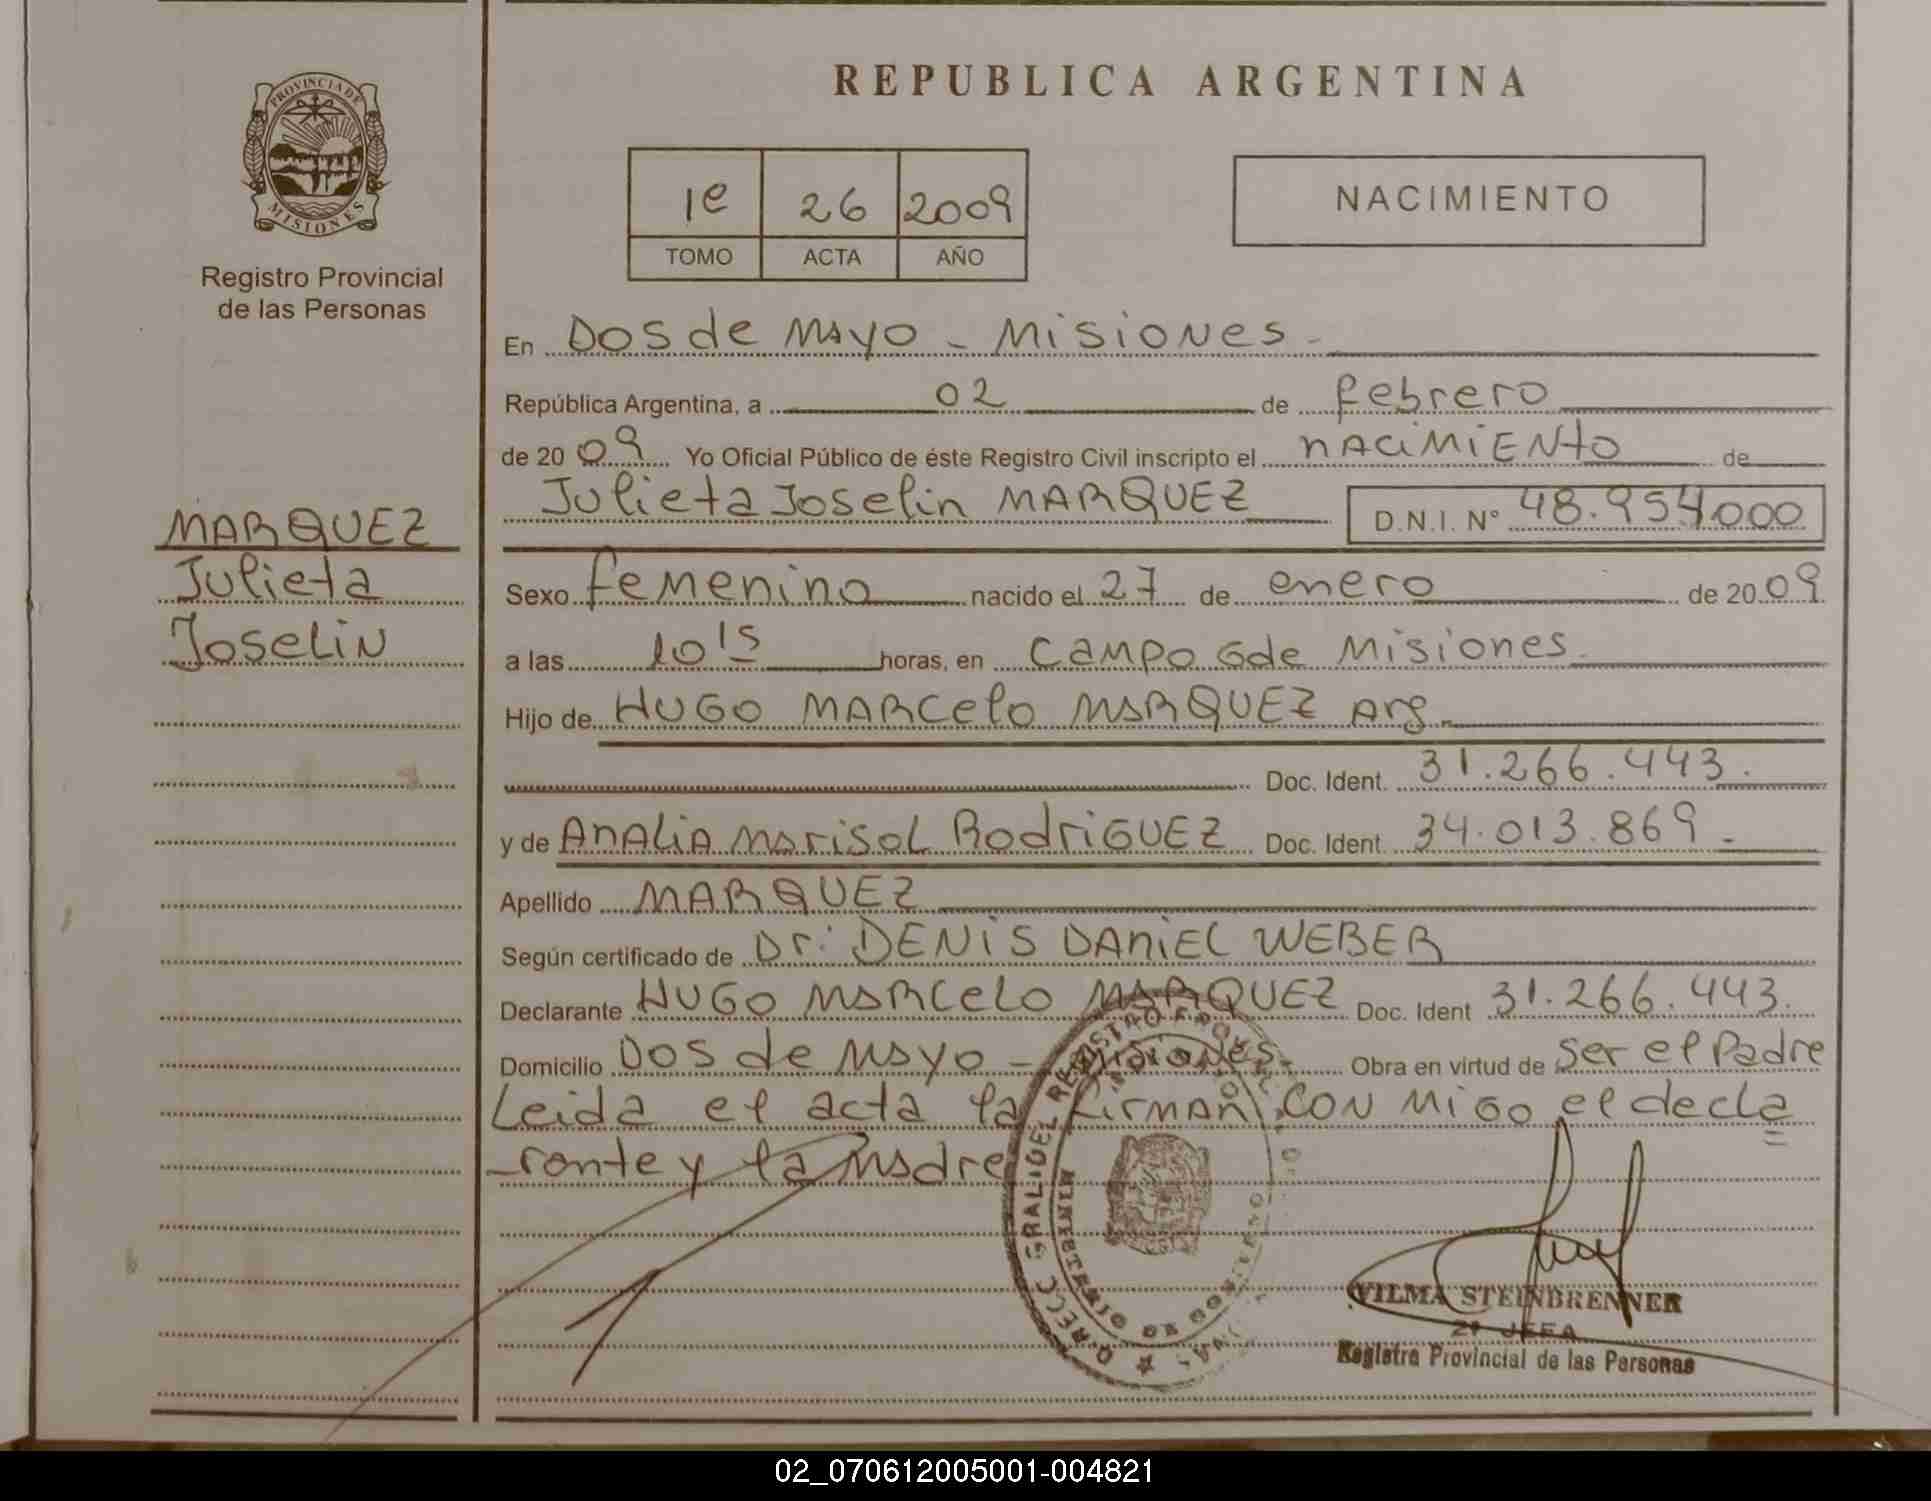 PROVINCIA DE
MISIONES
Registro Provincial
de las Personas
MARQUEZ
Julieta
Joselin
REPUBLICA ARGENTINA
1e 26 2009
TOMO ACTA AÑO
NACIMIENTO
En Dos de Mayo - Misiones -
República Argentina, a 02 de febrero
de 20 09 Yo Oficial Público de éste Registro Civil inscripto el nacimiento de
Julieta Joselin MARQUEZ D.N.I. N° 48.954000
Sexo femenino nacido el 27 de enero de 20 09
a las 10 15 horas, en Campo Gde Misiones.
Hijo de HUGO MARCelo MARQUEZ Arg.
Doc. Ident. 31.266.443.
y de AnALiA Marisol RodriGUEZ Doc. Ident. 34.013.869.-
Apellido MARQUEZ
Según certificado de Dr: DENiS DAniEL WEBER
Declarante HUGO MARCelo MARQUEZ Doc. Ident 31.266.443.
Domicilio Dos de Mayo - Misiones - Obra en virtud de Ser el Padre
Leida el acta la firman con migo el decla
rante y la Madre
VILMA STEINBRENNER
2° JEFA
Registro Provincial de las Personas
02_070612005001-004821